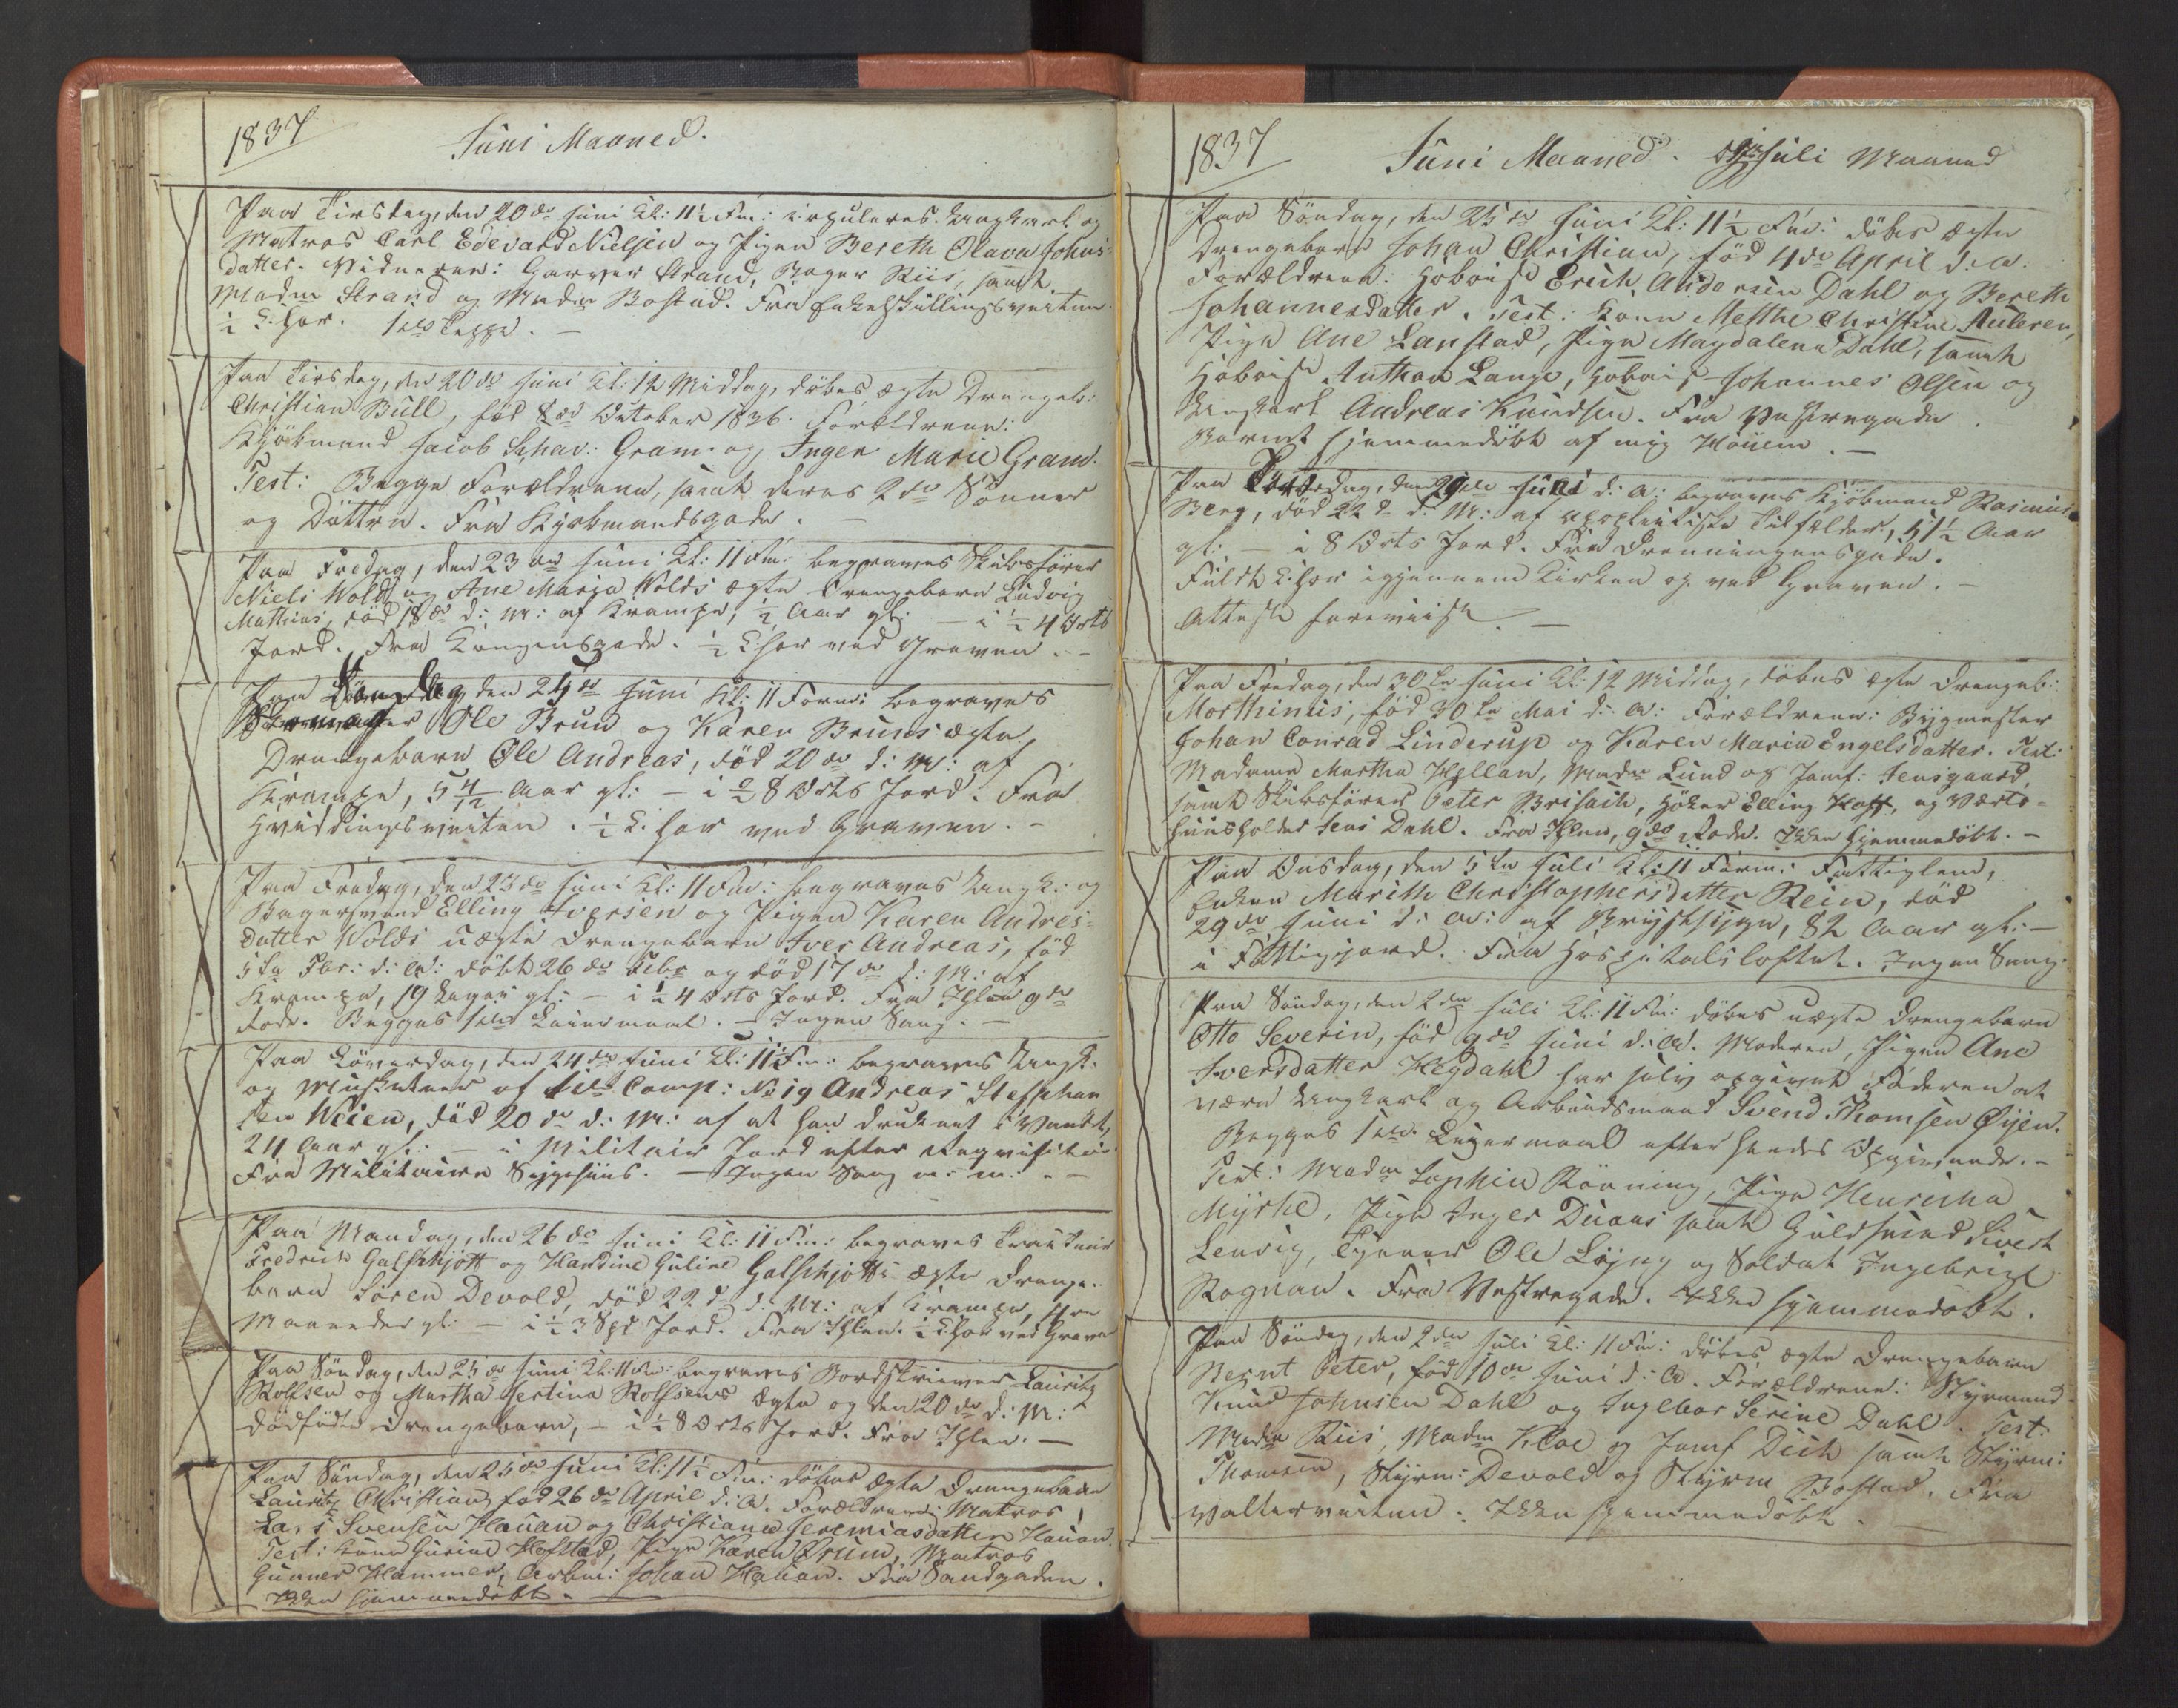 1837
Juni Maaned.
Paa Tirsdag, den 20de Juni Kl: 11½ Fm: copuleres Ungkarl og
Matros Carl Edevard Nielsen og Pigen Bereth Olava Johns-
datter. Vidnerne: Garver Strand, Bager Riis, samt
Madm Strand og Madm Bostad. Fra Enkelskillingsveiten
½ Chor. 1ste Teppe. —
Paa Tirsdag, den 20de Juni Kl: 12 Middag, döbes ægte Drengeb:
Christian Bull, föd 8de October 1836. Forældrene:
Kjöbmand Jacob Schav: Gram og Inger Marie Gram.
Test: Begge Forældrene, samt deres 2de Sönner
og Döttre. Fra Kjöbmandsgade. —
Paa Fredag, den 23de Juni Kl: 11 Fm: begraves Skibsförer
Niels Wold og Ane Marja Wolds ægte Drengebarn Ludvig
Mathias, död 18de d: M: af Krampe, ½ Aar gl: — i ½ 4 Orts
Jord. Fra Kongensgade. ½ Chor ved Graven. —
Paa Söndag den 25de Juni Kl: 11 Form: begraves
Ole Brun og Karen Bruns ægte
Drengebarn Ole Andreas, död 20de d: M: af
Krampe, 5 4/12 Aar gl: — i ½ 8 Orts Jord. Fra
Hviddingsveiten. ½ Chor ved Graven. —
Paa Fredag, den 23de Juni Kl: 11 Fm: begraves Ungk: og
Bagersvend Elling Iversen og Pigen Karen Andres-
datter Volds uægte Drengebarn Iver Andreas, föd
5te Fbr: d: A: döbt 26de Febr og död 17de d: M: af
Krampe, 19 Uger gl: — i ½ 4 Orts Jord. Fra Ihlen 9de
Rode. Begges 1ste Leiermaal. — Ingen Sang. —
Paa Löverdag, den 24de Juni Kl: 11 Fm: begraves Ungk:
og Musketeer af 1ste Comp: No 19 Andreas Stephan
sen Weien, död 20de d: M: af at han druknet i Vandet,
24 Aar gl: — i Militair Jord efter Reqvisition
Fra Militaire Sygehuus. — Ingen Sang m: m: —
Paa Mandag, den 26de Juni Kl: 11 Fm: begraves
Fredrich Galschjött og Hardine Guline Galschjötts ægte Drenge-
barn Sören Devold, död 22de d: M: af Krampe, 4re
Maaneder gl: — i ½ 3 Spd Jord. Fra Ihlen. ½ Chor ved Graven
Paa Söndag, den 25de Juni Kl: 11 Fm: begraves Bordskriver Lauritz
Rolfsen og Martha Jertina Rolfsens ægte og den 20de d: M:
dödfödte Drengebarn, — i ½ 8 Orts Jord. Fra Ihlen. —
Paa Söndag, den 25de Juni Kl: 11½ Fm: döbes ægte Drengebarn
Lauritz Christian, föd 26de April d: A. Forældrene: Matros
Lars Svensen Hauan og Christiane Jeremiasdatter Hauan.
Test: Kone Gurine Hofstad, Pige Karen Brun, Matros
Gunner Hammer, Arbm: Johan Hauan. Fra Sandgaden.
Ikke hjemmedöbt. —
1837
Juni Maaned. Juli Maaned
Paa Söndag, den 25de Juni Kl: 11½ Fm: döbes ægte
Drengebarn Johan Christian, föd 4de April d: A.
Forældrene: Hoboist Erich Andersen Dahl og Bereth
Johannesdatter. Test: Kone Metthe Christine Auleren,
Pige Ane Lanstad, Pige Magdalena Dahl, samt
Hoboist Anthon Lange, Hoboist Johannes Olsen og
Ungkarl Andreas Knudsen. Fra Vestregade.
Barnet hjemmedöbt af mig Höiem. —
Paa dag, den 29de Juni d: A: begraves Kjöbmand Rasmus
Berg, död 22de d: M: af apoplectiske Tilfælde, 51½ Aar
gl: — i 8 Orts Jord. Fra Dronningensgade.
Fuldt Chor igjennem Kirken og ved Graven. —
Attest foreviist. —
Paa Fredag, den 30te Juni Kl: 12 Middag, döbes ægte Drengeb:
Morthinus, föd 30te Mai d: A: Forældrene: Bygmester
Johan Conrad Linderup og Karen Maria Engelsdatter. Test:
Madame Martha Hollan, Madm Lund og Jomf: Jensgaard
samt Skibsförer Peter Brisach, Höker Elling Hoff, og Værts-
huusholder Jens Dahl. Fra Ihlen, 9de Rode. Ikke hjemmedöbt. —
Paa Onsdag, den 5te Juli Kl: 11 Form: Fattiglem,
Enken Marith Christophersdatter Rein, död
29de Juni d: A: af Brystsyge, 82 Aar gl: —
i Fattigjord. Fra Hospitalsloftet. Ingen Sang.
Paa Söndag, den 2den Juli Kl: 11 Fm: döbes uægte Drengebarn
Otto Severin, föd 9de Juni d: A. Moderen, Pigen Ane
Iversdatter Hegdahl har selv opgivet Faderen at
være Ungkarl og Arbeidsmand Svend Thomsen Öijen.
Begges 1ste Leiermaal efter hendes Opgivende. —
Test: Madm Sophie Rönning, Pige Henricha
Myrhe, Pige Inger Duaas samt Guldsmed Sivert
Lenvig, Tjener Ole Lyng og Soldat Ingebrigt
Rognan. Fra Vestregade. Ikke hjemmedöbt.
Paa Söndag, den 2den Juli Kl: 11 Fm: döbes ægte Drengebarn
Bernt Peter, föd 10de Juni d: A. Forældrene: Styrmand
Knud Johnsen Dahl og Ingebor Serine Dahl. Test:
Madm Riis, Madm Kloe og Jomf Dich samt Styrm:
Thomsen, Styrm: Devold og Styrm Bostad. Fra
Vatterveiten. Ikke hjemmedöbt. —